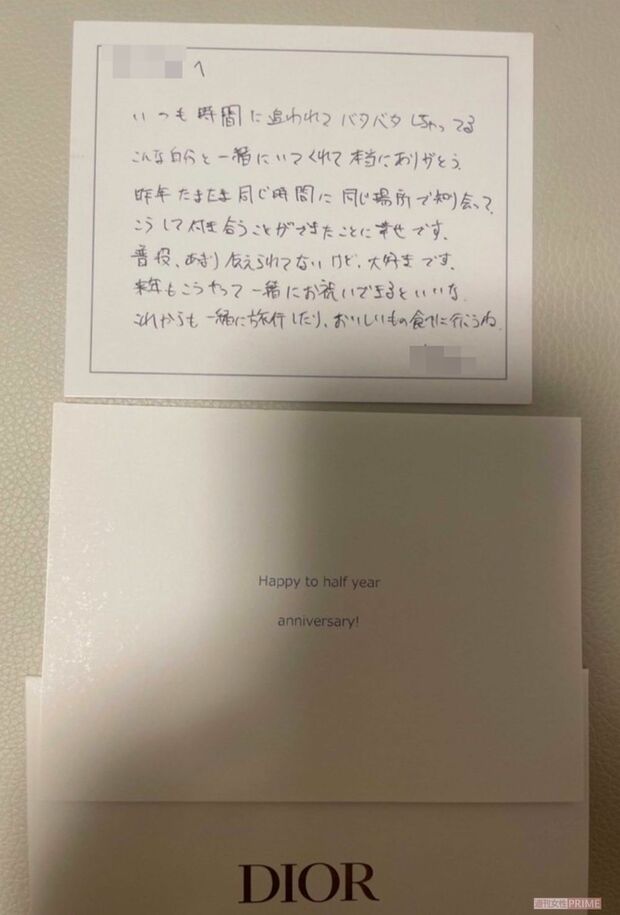 へ
いつも時間に追われてバタバタしちゃってる
こんな自分と一緒にいてくれて本当にありがとう。
昨年たまたま同じ時間に同じ場所で知り会って、
こうして付き合うことができたことに幸せです。
普段、あまり伝えられてないけど、大好きです。
来年もこうやって一緒にお祝いできるといいな。
これからも一緒に旅行したり、おいしいもの食べに行こうね。
Happy to half year
anniversary!
DIOR
週刊女性PRIME